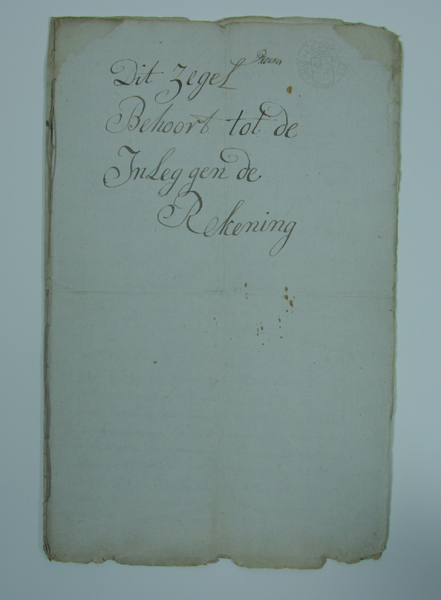 Dit Zegel
Behoort tot de
Inleggende
Rekening